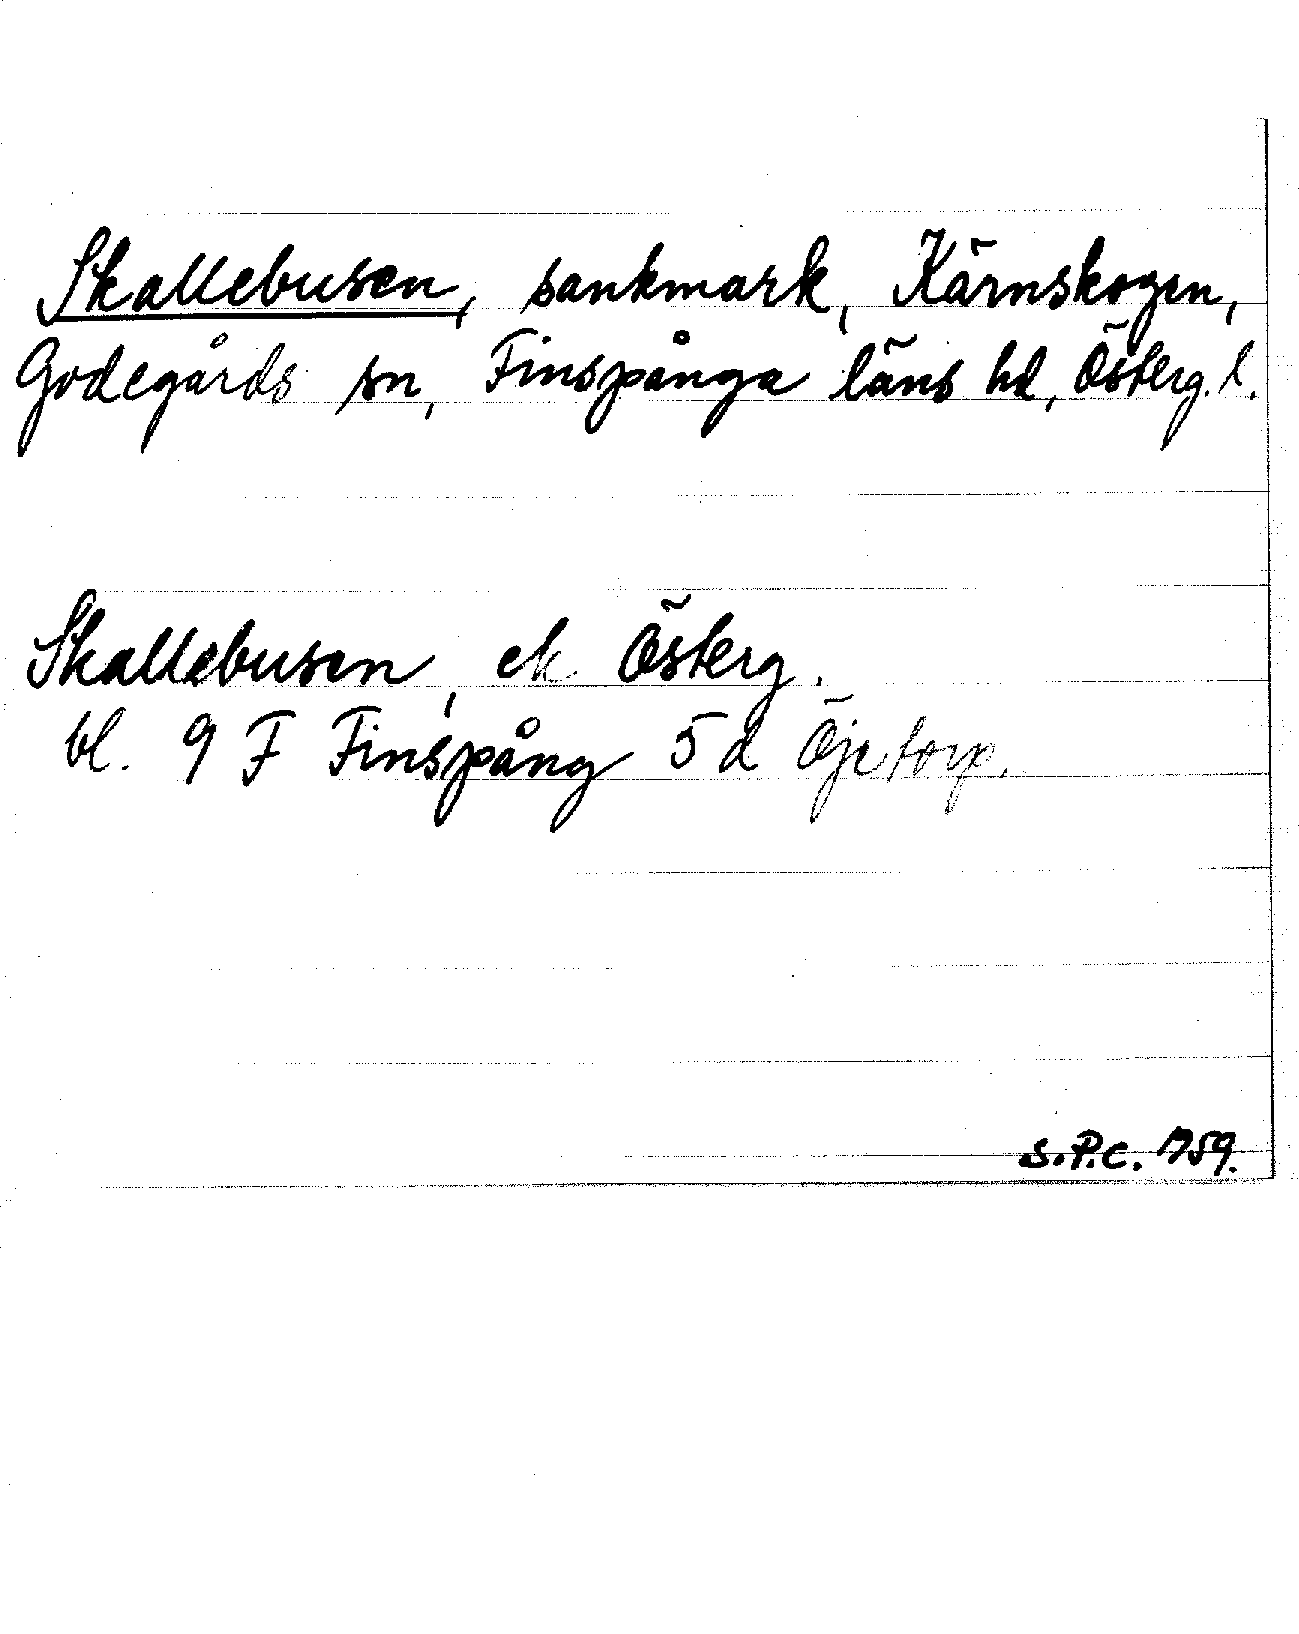 Skallebusen, sankmark, Kärnskogen,
Godegårds sn, Finspånga läns hd, Österg. l.
Skallebusen, ek Österg.
bl. 9 F Finspång 5 d Öjetorp.
S.P.C. 1959.